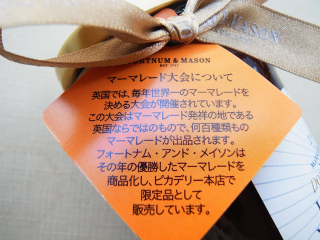 MASON
FORTNUM & MASON
EST 1707
マーマレード大会について
英国では、毎年世界一のマーマレードを
決める大会が開催されています。
この大会はマーマレード発祥の地である
英国ならではのもので、何百種類もの
マーマレードが出品されます。
フォートナム・アンド・メイソンは
その年の優勝したマーマレードを
商品化し、ピカデリー本店で
限定品として
販売しています。